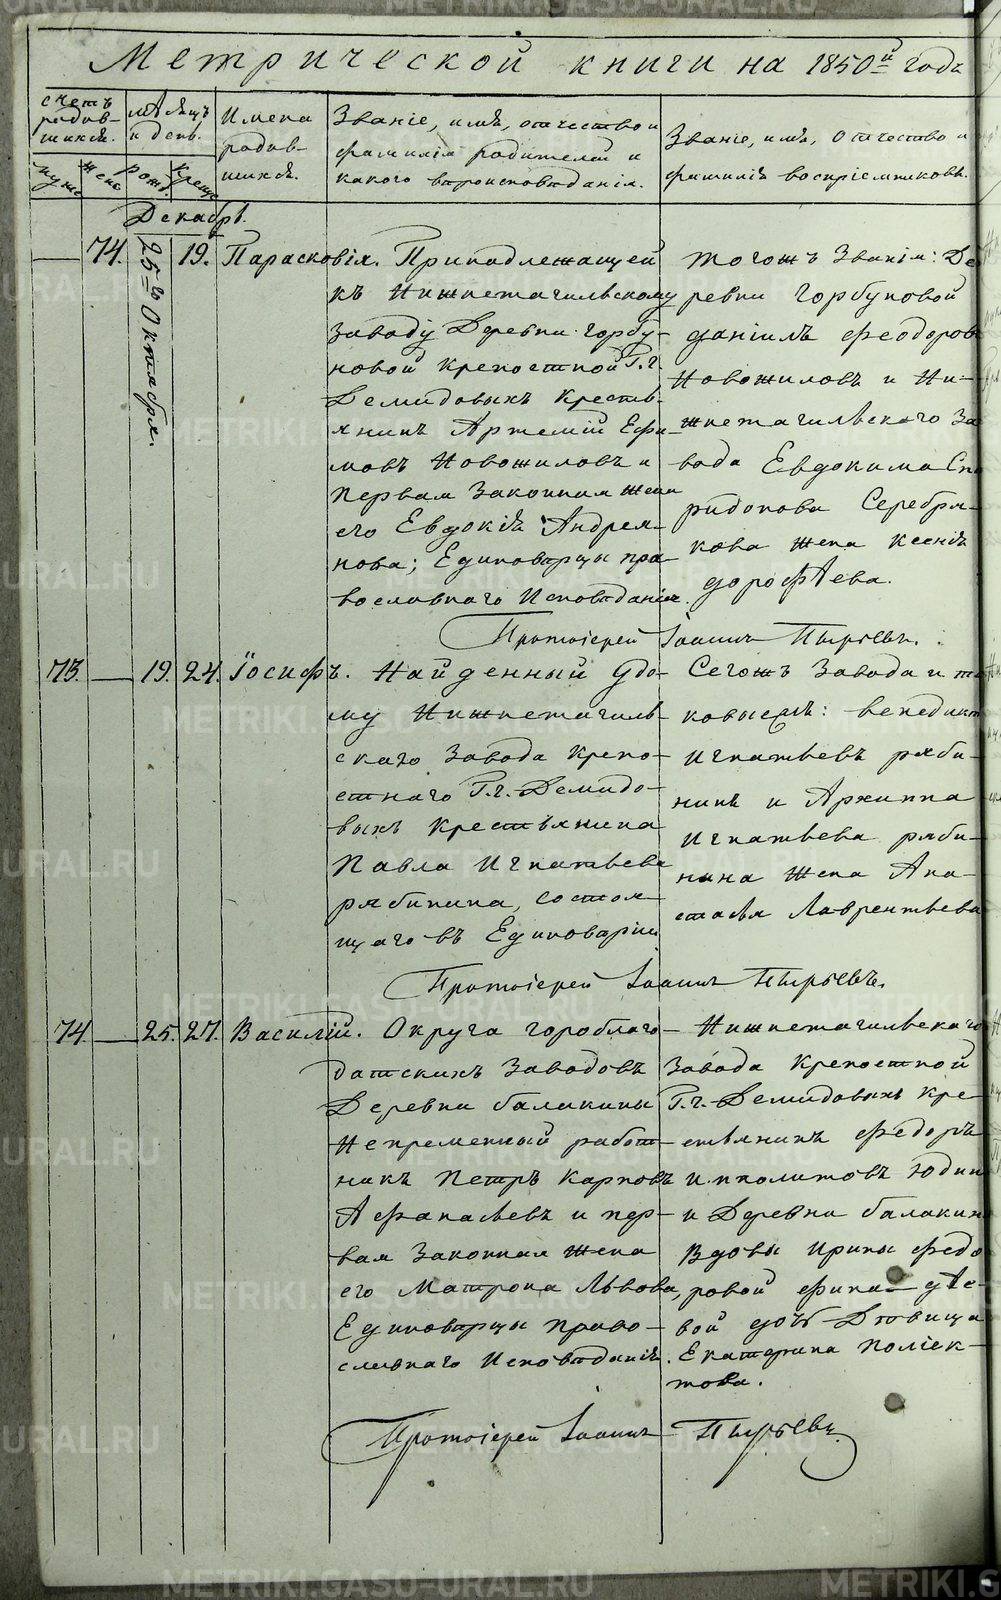 Метрической книги на 1850й года
счетъ родив-шихся.
мѣсяцъ и день.
Имена родив-шихся.
Званіе, имя, отчество и фамилія родителей и какого вѣроисповѣданія.
Званіе, имя, отчество и фамилія воспріемниковъ.
муж. жен. рожд. крещ.
Декабрь.
— 74. 25го Октября. 19. Парасковія.
Принадлежащей
къ Нижнетагильскому
заводу Деревни Горбу-
новой крепостной Г.г.
Демидовыхъ Кресть-
янинъ Артемій Ефи-
мовъ Новожиловъ и
первая законная жена
его Евдокія Андрея-
нова; Единоверцы пра-
вославнаго Исповѣданія.
тогожъ Званія: Де
ревни Горбуновой
Даніилъ Феодоров
Новожиловъ и Ни-
жнетагильского За
вода Евдокима Спи
ридонова Серебря-
кова жена Ксенія
Дорофѣева.
Протоіерей Іоаннъ Пырьевъ.
73. — 19. 24. Іосифъ.
Найденный у до-
му Нижнетагиль-
скаго Завода Крепо-
стнаго Г.г. Демидо-
выхъ крестьянина
Павла Игнатьева
рябинина, состоя-
щаго въ Единоверіи
Сегожъ Завода и та
ковыежъ: венедикт
Игнатьевъ ряби-
нинъ и Архиппа
Игнатьева ряби-
нина жена Ана-
стасья Лаврентьева
Протоіерей Іоаннъ Пырьевъ.
74. — 25. 27. Василій.
Округа гороблаго-
датскихъ заводовъ
Деревни балакины
Непременный работ-
никъ Петръ Карповъ
Афанасьевъ и пер-
вая законная жена
его Матрона Львова,
Единоверцы право-
славнаго Исповѣданія.
Нижнетагильскаго
Завода Крепостной
Г.г. Демидовыхъ кре-
стьянинъ Федоръ
Ипполитовъ Юдин
и Деревни балакин
Вдовы Ирины Федо
ровой фина- дѣе-
вой дочь Дѣвица
Екатерина Поліек-
това.
Протоіерей Іоаннъ Пырьевъ
METRIKI.GASO-URAL.RU